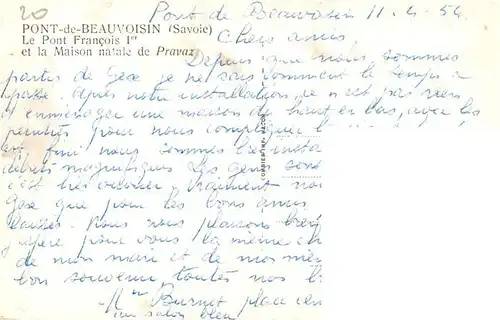 20
Pont de Beauvoisin 11-4-54
PONT-de-BEAUVOISIN (Savoie)
Le Pont François Ier
et la Maison natale de Pravaz
Chers amis
Depuis que nous sommes
partis de Gèse je ne sais comment le temps a
passé. Après notre installation, ce n'est pas rien
d'emménager une maison de haut en bas, avec les
peintres pour nous compliquer
est fini nous sommes bien insta
débuts magnifiques. Les gens sont
c'est très ouvrier. Vraiment
Gèse que pour les bons amis
laissés. Nous nous plaisons bien
J'espère pour vous la même ch
de mon mari et de mes
bon souvenir toutes nos
Mme Burnet place
un salon bleu
COMBIER IMP. MACON